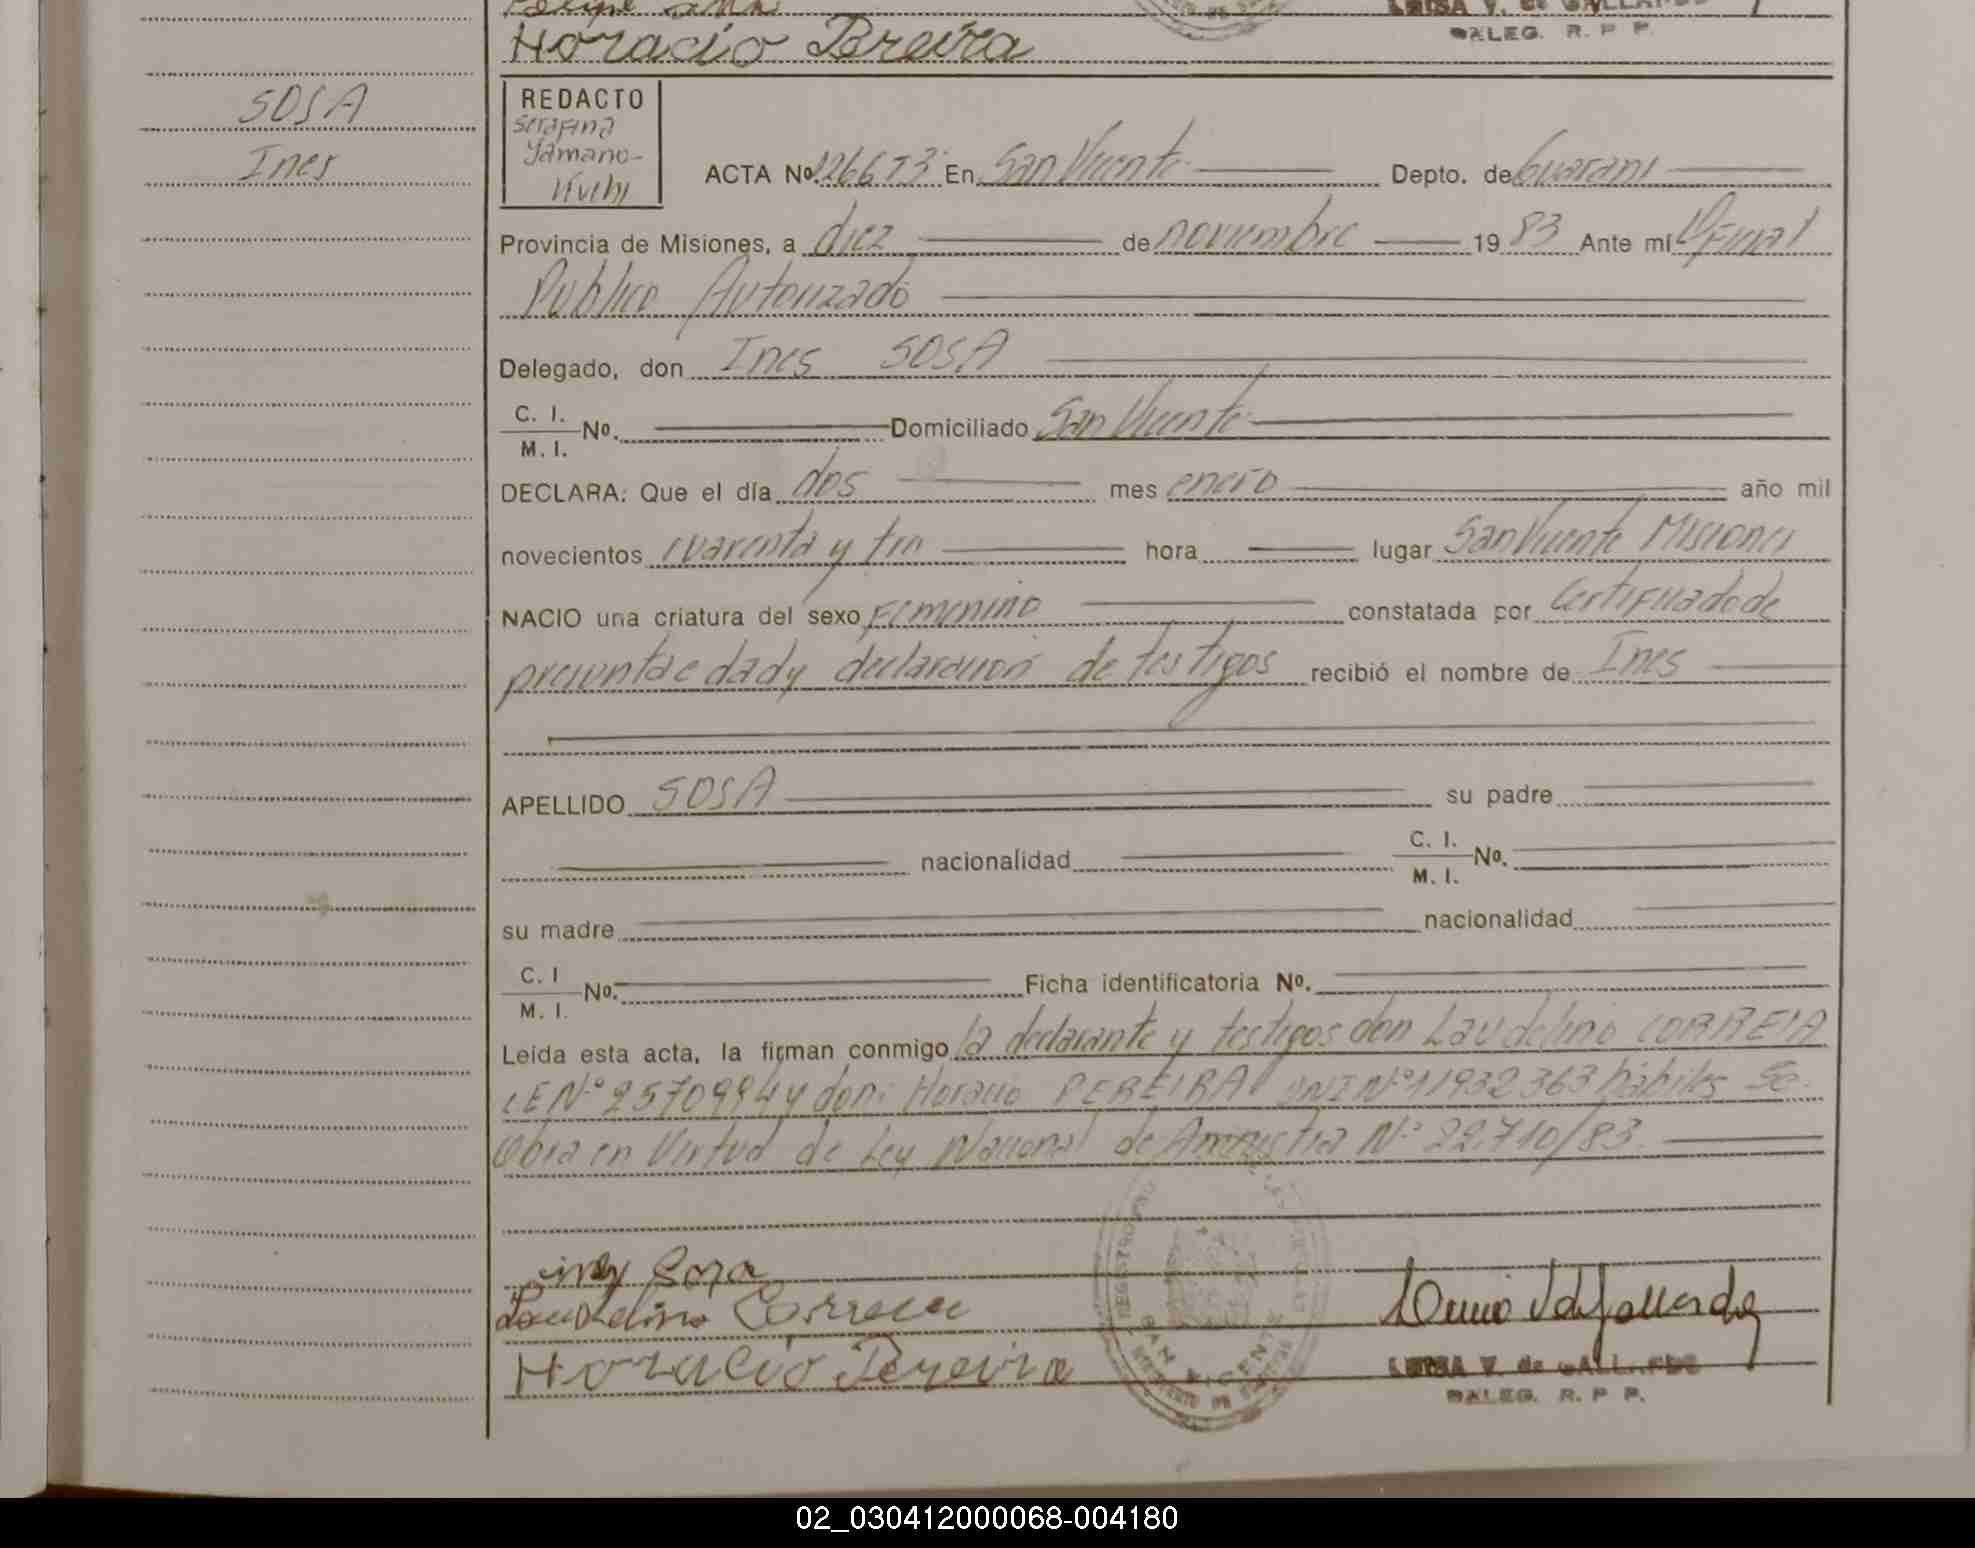 Horacio Pereira
LUISA V. de GALLARDO
DALEG. R. P P.
SOSA
Ines
REDACTO
Serafina
Yamano-
ACTA No. En San Vicente Depto. de Guarani
Provincia de Misiones, a diez de noviembre 19 83 Ante mí Oficial
Publico Autorizado
Delegado, don Ines SOSA
C. I.
M. I. No. Domiciliado San Vicente
DECLARA: Que el día dos mes enero año mil
novecientos cuarenta y tres hora lugar San Vicente Misiones
NACIO una criatura del sexo Femenino constatada por Certificado de
presunta edad y declaracion de testigos recibió el nombre de Ines
APELLIDO SOSA su padre
nacionalidad C. I.
M. I. No.
su madre nacionalidad
C. I
M. I. No. Ficha identificatoria No.
Leida esta acta, la firman conmigo la declarante y testigos don Laudelino CORREIA
LE Nº y don: Horacio PEREIRA DNI Nº 11932363 hábiles Se
Obra en Virtud de Ley Nacional de Amnistia Nº 22.710/83
Ines Sosa
Laudelino Correia
Horacio Pereira
SAN VICENTE
LUISA V. de GALLARDO
DALEG. R. P P.
02_030412000068-004180